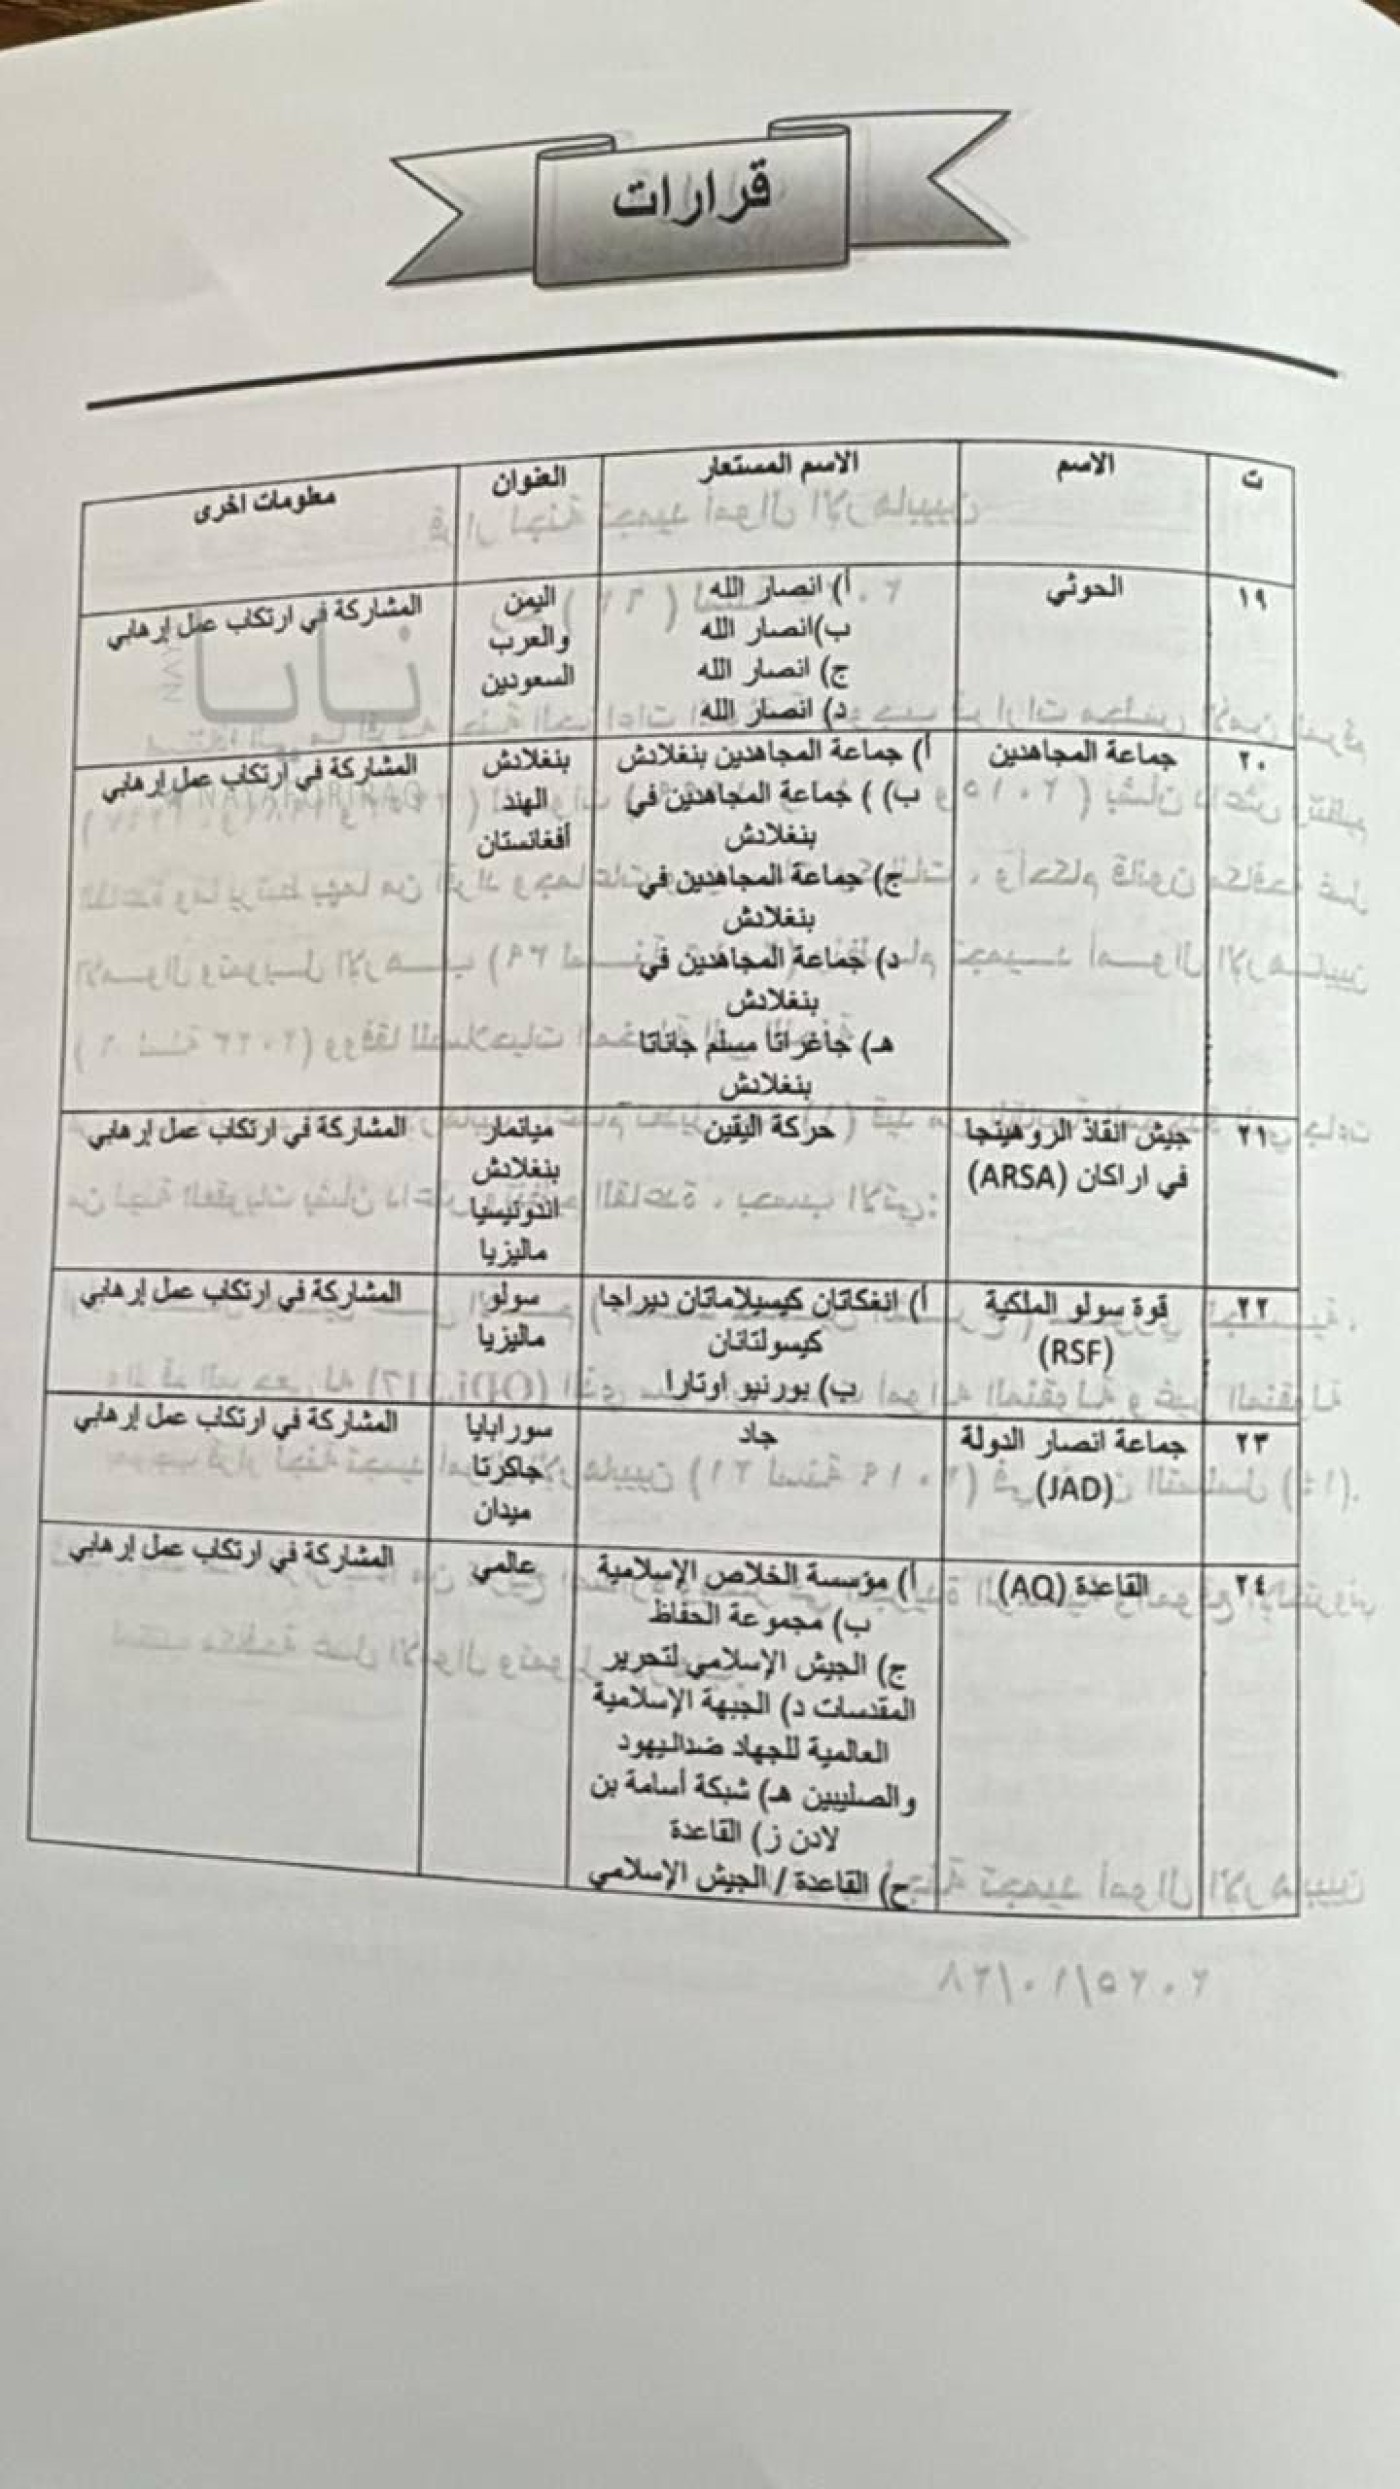 قرارات
ت الاسم الاسم المستعار العنوان معلومات اخرى
١٩ الحوثي أ) انصار الله اليمن المشاركة في ارتكاب عمل إرهابي
ب)انصار الله والعرب
ج) انصار الله السعودين
د) انصار الله
٢٠ جماعة المجاهدين أ) جماعة المجاهدين بنغلادش بنغلادش المشاركة في ارتكاب عمل إرهابي
ب) ) جماعة المجاهدين في الهند
بنغلادش أفغانستان
ج) جماعة المجاهدين في
بنغلادش
د) جماعة المجاهدين في
بنغلادش
هـ) جاغراتا مسلم جاناتا
بنغلادش
٢١ جيش انقاذ الروهينجا حركة اليقين ميانمار المشاركة في ارتكاب عمل إرهابي
في اراكان (ARSA) بنغلادش
اندونيسيا
ماليزيا
٢٢ قوة سولو الملكية أ) انغكاتان كيسيلاماتان ديراجا سولو المشاركة في ارتكاب عمل إرهابي
(RSF) كيسولتانان ماليزيا
ب) بورنيو اوتارا
٢٣ جماعة انصار الدولة جاد سورابايا المشاركة في ارتكاب عمل إرهابي
(JAD) جاكرتا
ميدان
٢٤ القاعدة (AQ) أ) مؤسسة الخلاص الإسلامية عالمي المشاركة في ارتكاب عمل إرهابي
ب) مجموعة الحفاظ
ج) الجيش الإسلامي لتحرير
المقدسات د) الجبهة الإسلامية
العالمية للجهاد ضداليهود
والصليبين هـ) شبكة أسامة بن
لادن ز) القاعدة
ح) القاعدة / الجيش الإسلامي